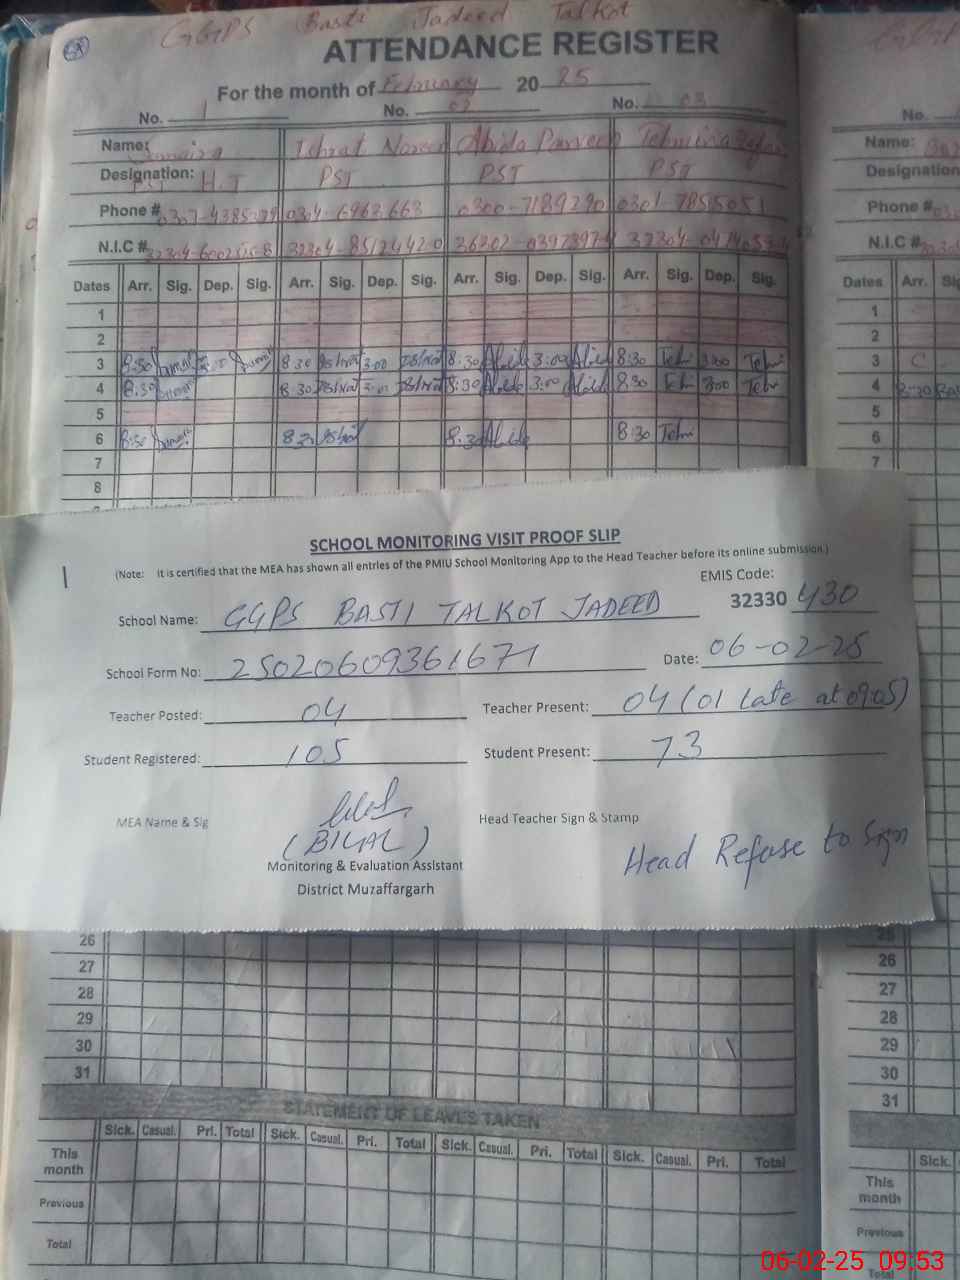 GGPS Basti Jadeed Talkot
ATTENDANCE REGISTER
For the month of February 20 25
No. 1 No. 02 No. 03
Name: Sumaira Ishrat Noreen Abida Parveen Tehmina
Designation: PST H.T PST PST PST
Phone # 0304-6962663 0300-7189290 0301-7855051
N.I.C # 32304-8512442-0
Dates Arr. Sig. Dep. Sig. Arr. Sig. Dep. Sig. Arr. Sig. Dep. Sig. Arr. Sig. Dep. Sig.
1
2
3 8:30 8:30 Ishrat 3:00 Ishrat 8:30 Abida 3:00 Abida 8:30 Teh 3:00 Teh
4 8:30 8:30 Ishrat 3:00 Ishrat 8:30 Abida 3:00 Abida 8:30 Teh 3:00 Teh
5
6 8:30 8:30 Ishrat 8:30 Abida 8:30 Teh
7
8
SCHOOL MONITORING VISIT PROOF SLIP
(Note: It is certified that the MEA has shown all entries of the PMIU School Monitoring App to the Head Teacher before its online submission.)
EMIS Code:
School Name: GGPS BASTI TALKOT JADEED 32330 430
School Form No: 25020609361671 Date: 06-02-25
Teacher Posted: 04 Teacher Present: 04 (01 late at 09:05)
Student Registered: 105 Student Present: 73
MEA Name & Sig (BILAL) Head Teacher Sign & Stamp
Head Refuse to Sign
Monitoring & Evaluation Assistant
District Muzaffargarh
26
27
28
29
30
31
STATEMENT OF LEAVES TAKEN
Sick. Casual. Pri. Total Sick. Casual. Pri. Total Sick. Casual. Pri. Total Sick. Casual. Pri. Total
This month
Previous
Total
No.
Name:
Designation
Phone #
N.I.C #
Dates Arr.
1
2
3 C
4 8:30
5
6
7
26
27
28
29
30
31
Sick.
This month
Previous
Total
06-02-25 09:53